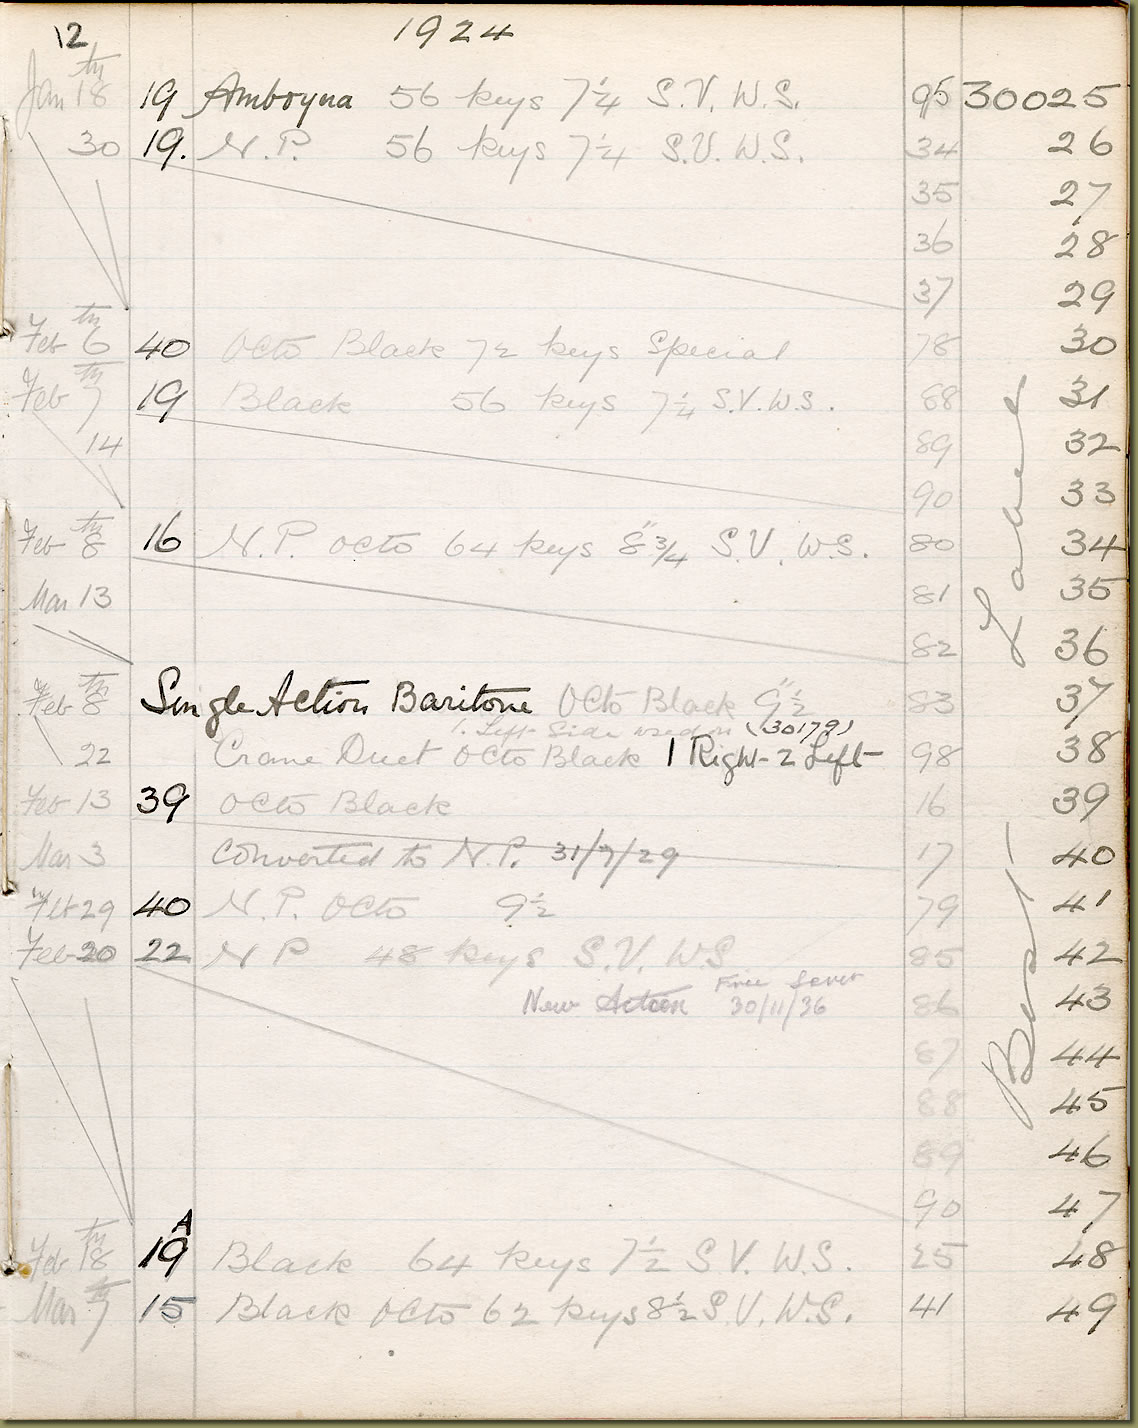 12 1924
Jan 18th 19 Amboyna 56 keys 7¼ S.V. W.S. 95 30025
30 19. N.P. 56 keys 7¼ S.V. W.S. 34 26
35 27
36 28
37 29
Feb 6th 40 Octo Black 72 keys Special 78 30
Feb 7th 19 Black 56 keys 7¼ S.V. W.S. 88 31
14 89 32
90 33
Feb 8th 16 N.P. Octo 64 keys 8¾" S.V. W.S. 80 34
Mar 13 81 35
82 36
Feb 8th Single Action Baritone Octo Black 9½" 83 37
1. Left Side used on (30179)
22 Crane Duet Octo Black 1 Right-2 Left 98 38
Feb 13 39 Octo Black 16 39
Mar 3 Converted to N.P. 31/7/29 17 40
Feb 29 40 N.P. Octo 9½ 79 41
Feb 20 22 N P 48 keys S.V. W.S 85 42
New Action 30/11/36 86 43
87 44
88 45
89 46
90 47
Feb 18th 19A Black 64 keys 7½ S V. W.S. 25 48
Mar 7th 15 Black Octo 62 keys 8½ S.V. W.S. 41 49